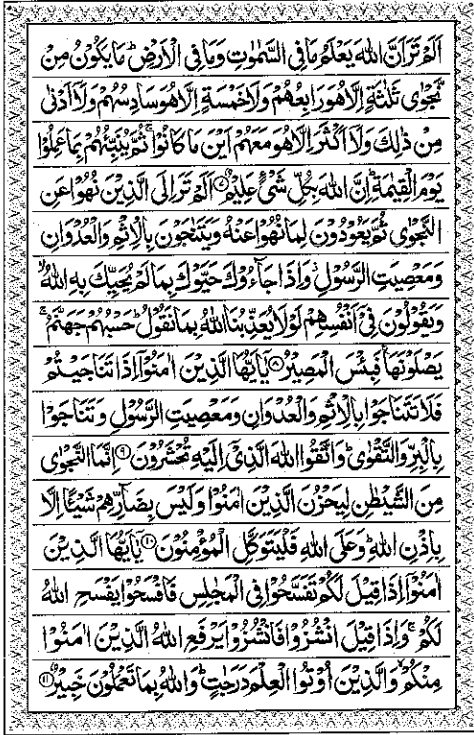 اَلَمْ تَرَ اَنَّ اللّٰهَ يَعْلَمُ مَا فِي السَّمٰوٰتِ وَمَا فِي الْاَرْضِ ؕ مَا يَكُوْنُ مِنْ
نَّجْوٰى ثَلٰثَةٍ اِلَّا هُوَ رَابِعُهُمْ وَلَا خَمْسَةٍ اِلَّا هُوَ سَادِسُهُمْ وَلَاۤ اَدْنٰى
مِنْ ذٰلِكَ وَلَاۤ اَكْثَرَ اِلَّا هُوَ مَعَهُمْ اَيْنَ مَا كَانُوْا ۚ ثُمَّ يُنَبِّئُهُمْ بِمَا عَمِلُوْا
يَوْمَ الْقِيٰمَةِ ؕ اِنَّ اللّٰهَ بِكُلِّ شَيْءٍ عَلِيْمٌ ۝۷ اَلَمْ تَرَ اِلَى الَّذِيْنَ نُهُوْا عَنِ
النَّجْوٰى ثُمَّ يَعُوْدُوْنَ لِمَا نُهُوْا عَنْهُ وَيَتَنٰجَوْنَ بِالْاِثْمِ وَالْعُدْوَانِ
وَمَعْصِيَتِ الرَّسُوْلِ ؗ وَاِذَا جَآءُوْكَ حَيَّوْكَ بِمَا لَمْ يُحَيِّكَ بِهِ اللّٰهُ ۙ
وَيَقُوْلُوْنَ فِيْۤ اَنْفُسِهِمْ لَوْلَا يُعَذِّبُنَا اللّٰهُ بِمَا نَقُوْلُ ؕ حَسْبُهُمْ جَهَنَّمُ ۚ
يَصْلَوْنَهَا ۚ فَبِئْسَ الْمَصِيْرُ ۝۸ يٰۤاَيُّهَا الَّذِيْنَ اٰمَنُوْۤا اِذَا تَنَاجَيْتُمْ
فَلَا تَتَنَاجَوْا بِالْاِثْمِ وَالْعُدْوَانِ وَمَعْصِيَتِ الرَّسُوْلِ وَتَنَاجَوْا
بِالْبِرِّ وَالتَّقْوٰى ؕ وَاتَّقُوا اللّٰهَ الَّذِيْۤ اِلَيْهِ تُحْشَرُوْنَ ۝۹ اِنَّمَا النَّجْوٰى
مِنَ الشَّيْطٰنِ لِيَحْزُنَ الَّذِيْنَ اٰمَنُوْا وَلَيْسَ بِضَآرِّهِمْ شَيْـًٔا اِلَّا
بِاِذْنِ اللّٰهِ ؕ وَعَلَى اللّٰهِ فَلْيَتَوَكَّلِ الْمُؤْمِنُوْنَ ۝۱۰ يٰۤاَيُّهَا الَّذِيْنَ
اٰمَنُوْۤا اِذَا قِيْلَ لَكُمْ تَفَسَّحُوْا فِي الْمَجٰلِسِ فَافْسَحُوْا يَفْسَحِ اللّٰهُ
لَكُمْ ۚ وَاِذَا قِيْلَ انْشُزُوْا فَانْشُزُوْا يَرْفَعِ اللّٰهُ الَّذِيْنَ اٰمَنُوْا
مِنْكُمْ ۙ وَالَّذِيْنَ اُوْتُوا الْعِلْمَ دَرَجٰتٍ ؕ وَاللّٰهُ بِمَا تَعْمَلُوْنَ خَبِيْرٌ ۝۱۱